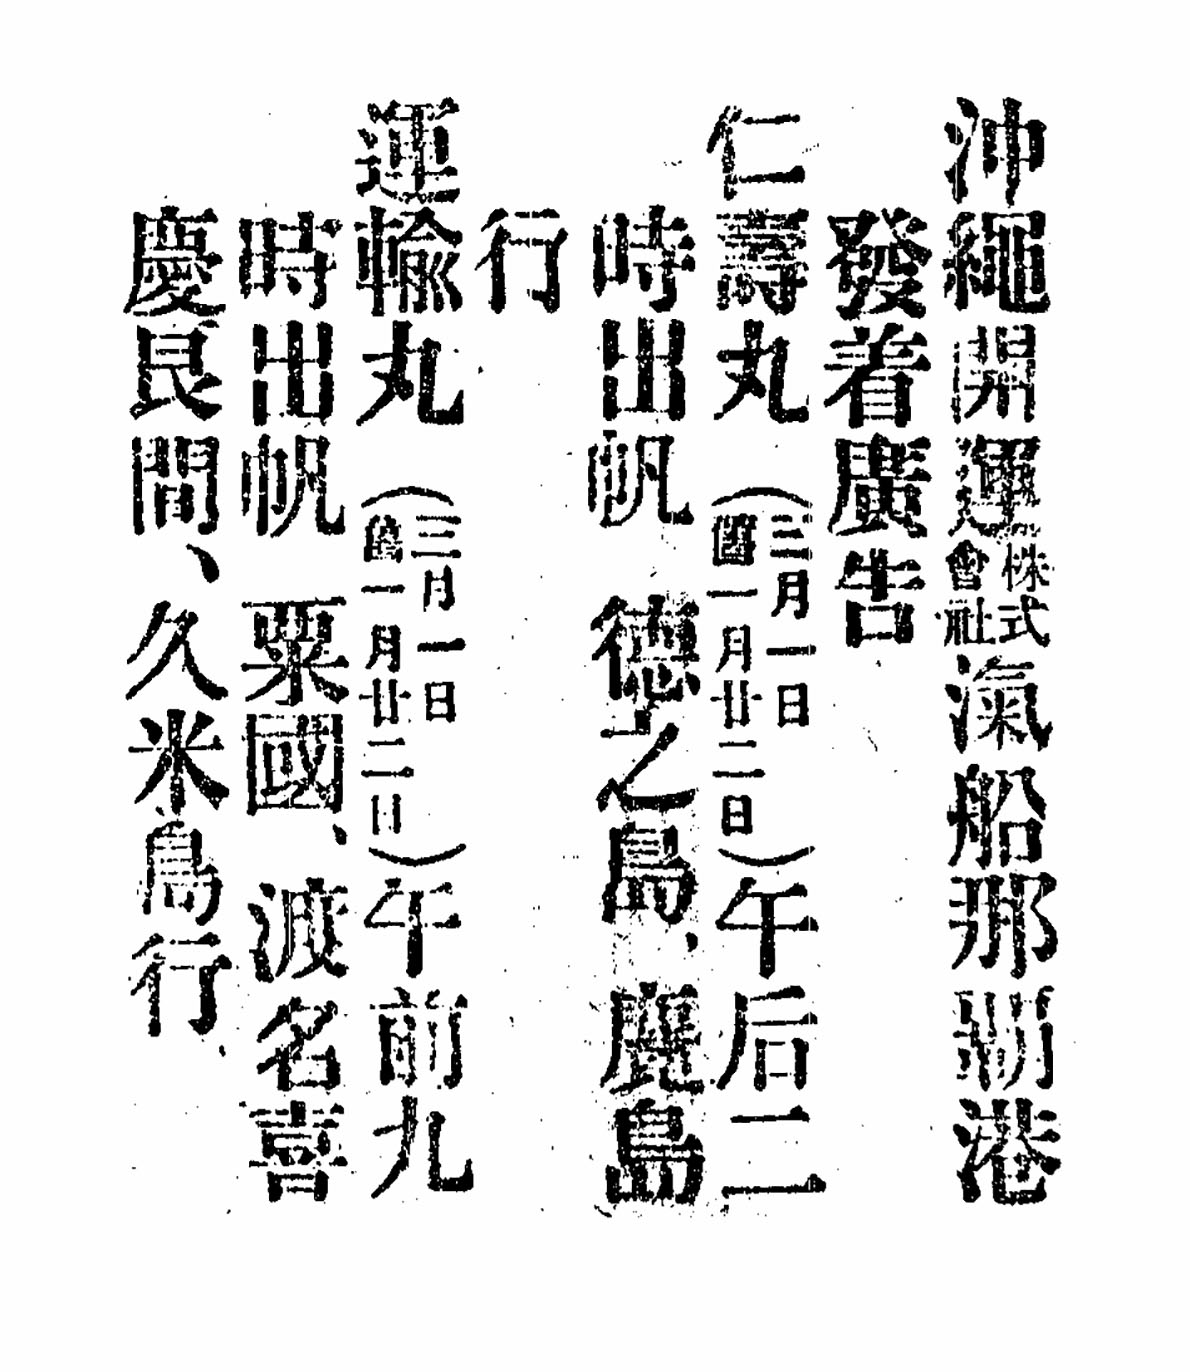 沖繩開運株式會社滊船那覇港
發着廣告
仁壽丸（三月一日舊一月廿二日）午后二
時出帆　德之島、鹿島
行
運輸丸（三月一日舊一月廿二日）午前九
時出帆　粟國、渡名喜
慶良間、久米島行